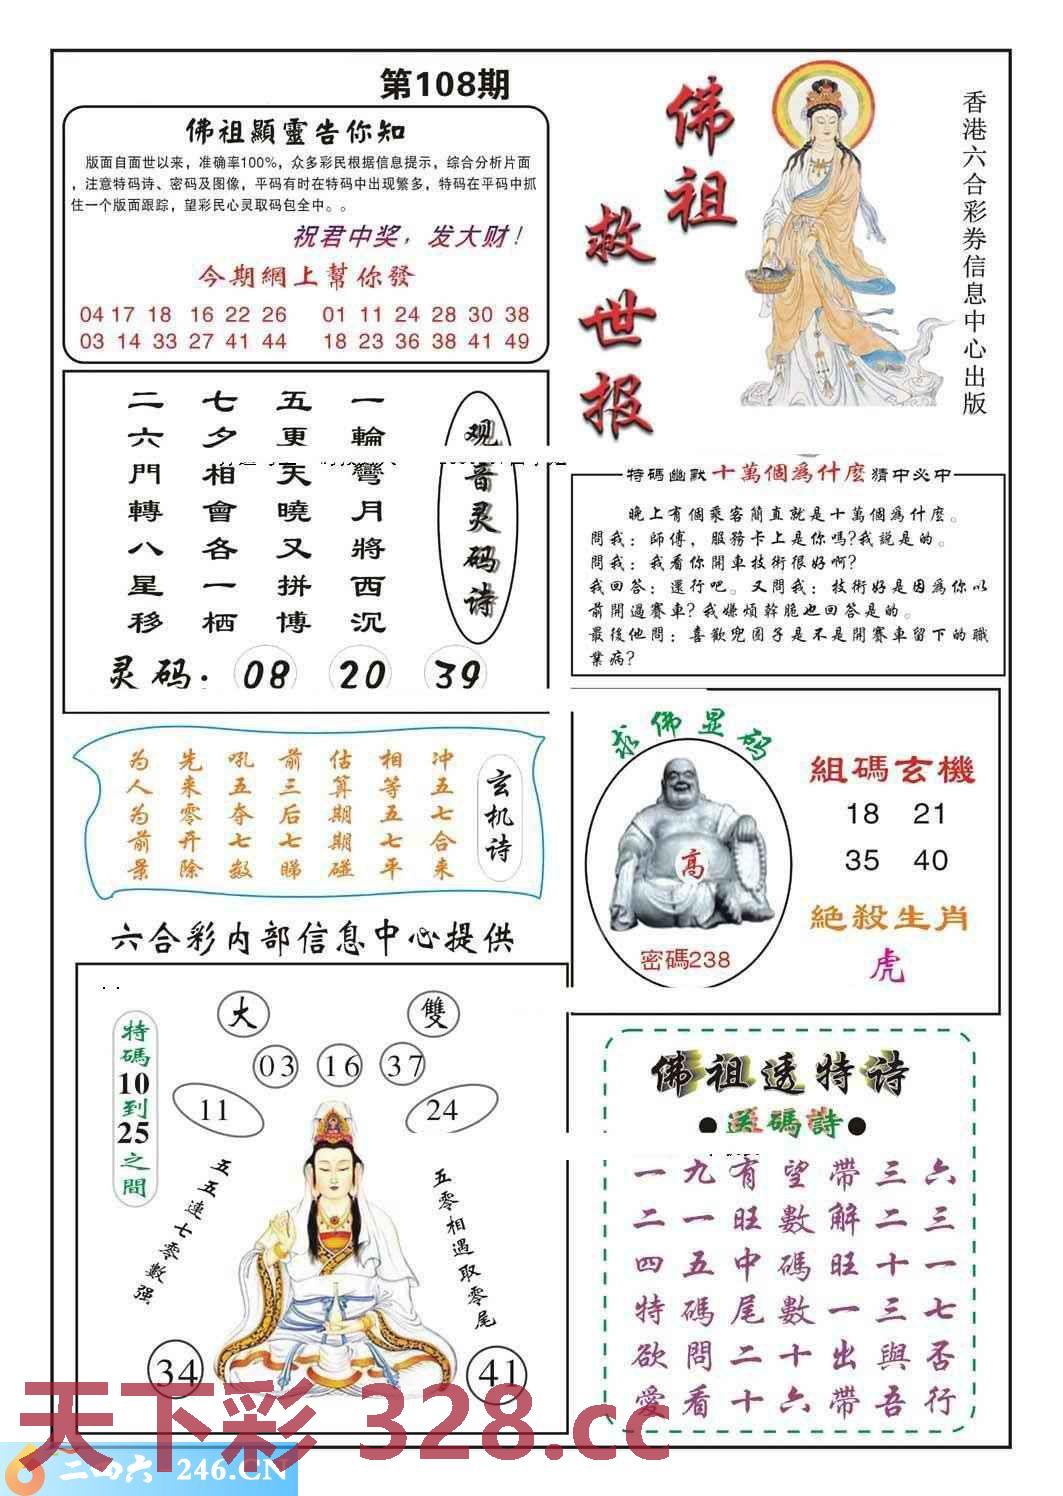 第108期
佛祖顯靈告你知
版面自面世以来，准确率100%，众多彩民根据信息提示，综合分析片面
，注意特码诗、密码及图像，平码有时在特码中出现繁多，特码在平码中抓
住一个版面跟踪，望彩民心灵取码包全中。。
祝君中奖，发大财！
今期網上幫你發
04 17 18 16 22 26 01 11 24 28 30 38
03 14 33 27 41 44 18 23 36 38 41 49
佛祖
救世报
香港六合彩券信息中心出版
观音灵码诗
一輪彎月將西沉
五更天曉又拼博
七夕相會各一栖
二六門轉八星移
灵码：08 20 39
特碼幽默十萬個為什麼猜中必中
晚上有個乘客簡直就是十萬個為什麼。
問我：師傅，服務卡上是你嗎?我說是的。
問我：我看你開車技術很好啊?
我回答：還行吧。又問我：技術好是因為你以
前開過賽車?我嫌煩幹脆也回答是的。
最後他問：喜歡兜圈子是不是開賽車留下的職
業病?
玄机诗
冲五七合来
相等五七平
估算期期碰
前三后七睇
吼五夺七数
先来零开除
为人为前景
求佛显码
高
密碼238
組碼玄機
18 21
35 40
絕殺生肖
虎
六合彩内部信息中心提供
特碼10到25之間
大
雙
03 16 37
11
24
五五連七零數强
五零相遇取零尾
34
41
佛祖透特诗
●送碼詩●
一九有望帶三六
二一旺數解二三
四五中碼旺十一
特碼尾數一三七
欲問二十出與否
愛看十六帶吾行
天下彩 328.cc
二四六 246.CN